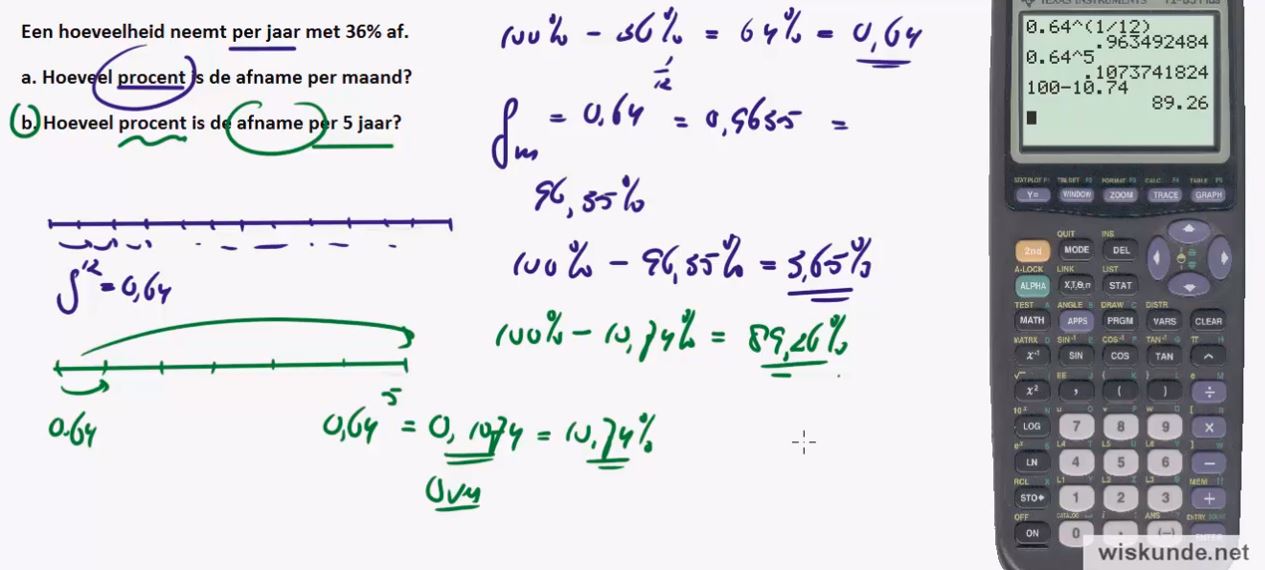 Een hoeveelheid neemt per jaar met 36% af.
a. Hoeveel procent is de afname per maand?
b. Hoeveel procent is de afname per 5 jaar?
100% - 36% = 64% = 0,64
gm = 0,64^1/12 = 0,9635 =
96,35%
100% - 96,35% = 3,65%
g^12 = 0,64
100% - 10,74% = 89,26%
0.64
0,64^5 = 0,1074 = 10,74%
TEXAS INSTRUMENTS
0.64^(1/12)
.963492484
0.64^5
.1073741824
100-10.74
89.26
STATPLOT F1 TBLSET F2 FORMAT F3 CALC F4 TABLE F5
Y= WINDOW ZOOM TRACE GRAPH
QUIT INS
2nd MODE DEL
A-LOCK LINK LIST
ALPHA X,T,θ,n STAT
TEST A ANGLE B DRAW C DISTR
MATH APPS PRGM VARS CLEAR
MATRX D SIN⁻¹ E COS⁻¹ F TAN⁻¹ G π H
x⁻¹ SIN COS TAN ^
√ I EE J { K } L e M
x² , ( ) ÷
10ˣ N u O v P w Q [ R
LOG 7 8 9 ×
eˣ S L4 T L5 U L6 V ] W
LN 4 5 6 −
RCL X L1 Y L2 Z L3 θ MEM "
STO▸ 1 2 3 +
OFF CATALOG i ANS ENTRY SOLVE
ON 0 . (−) ENTER
wiskunde.net